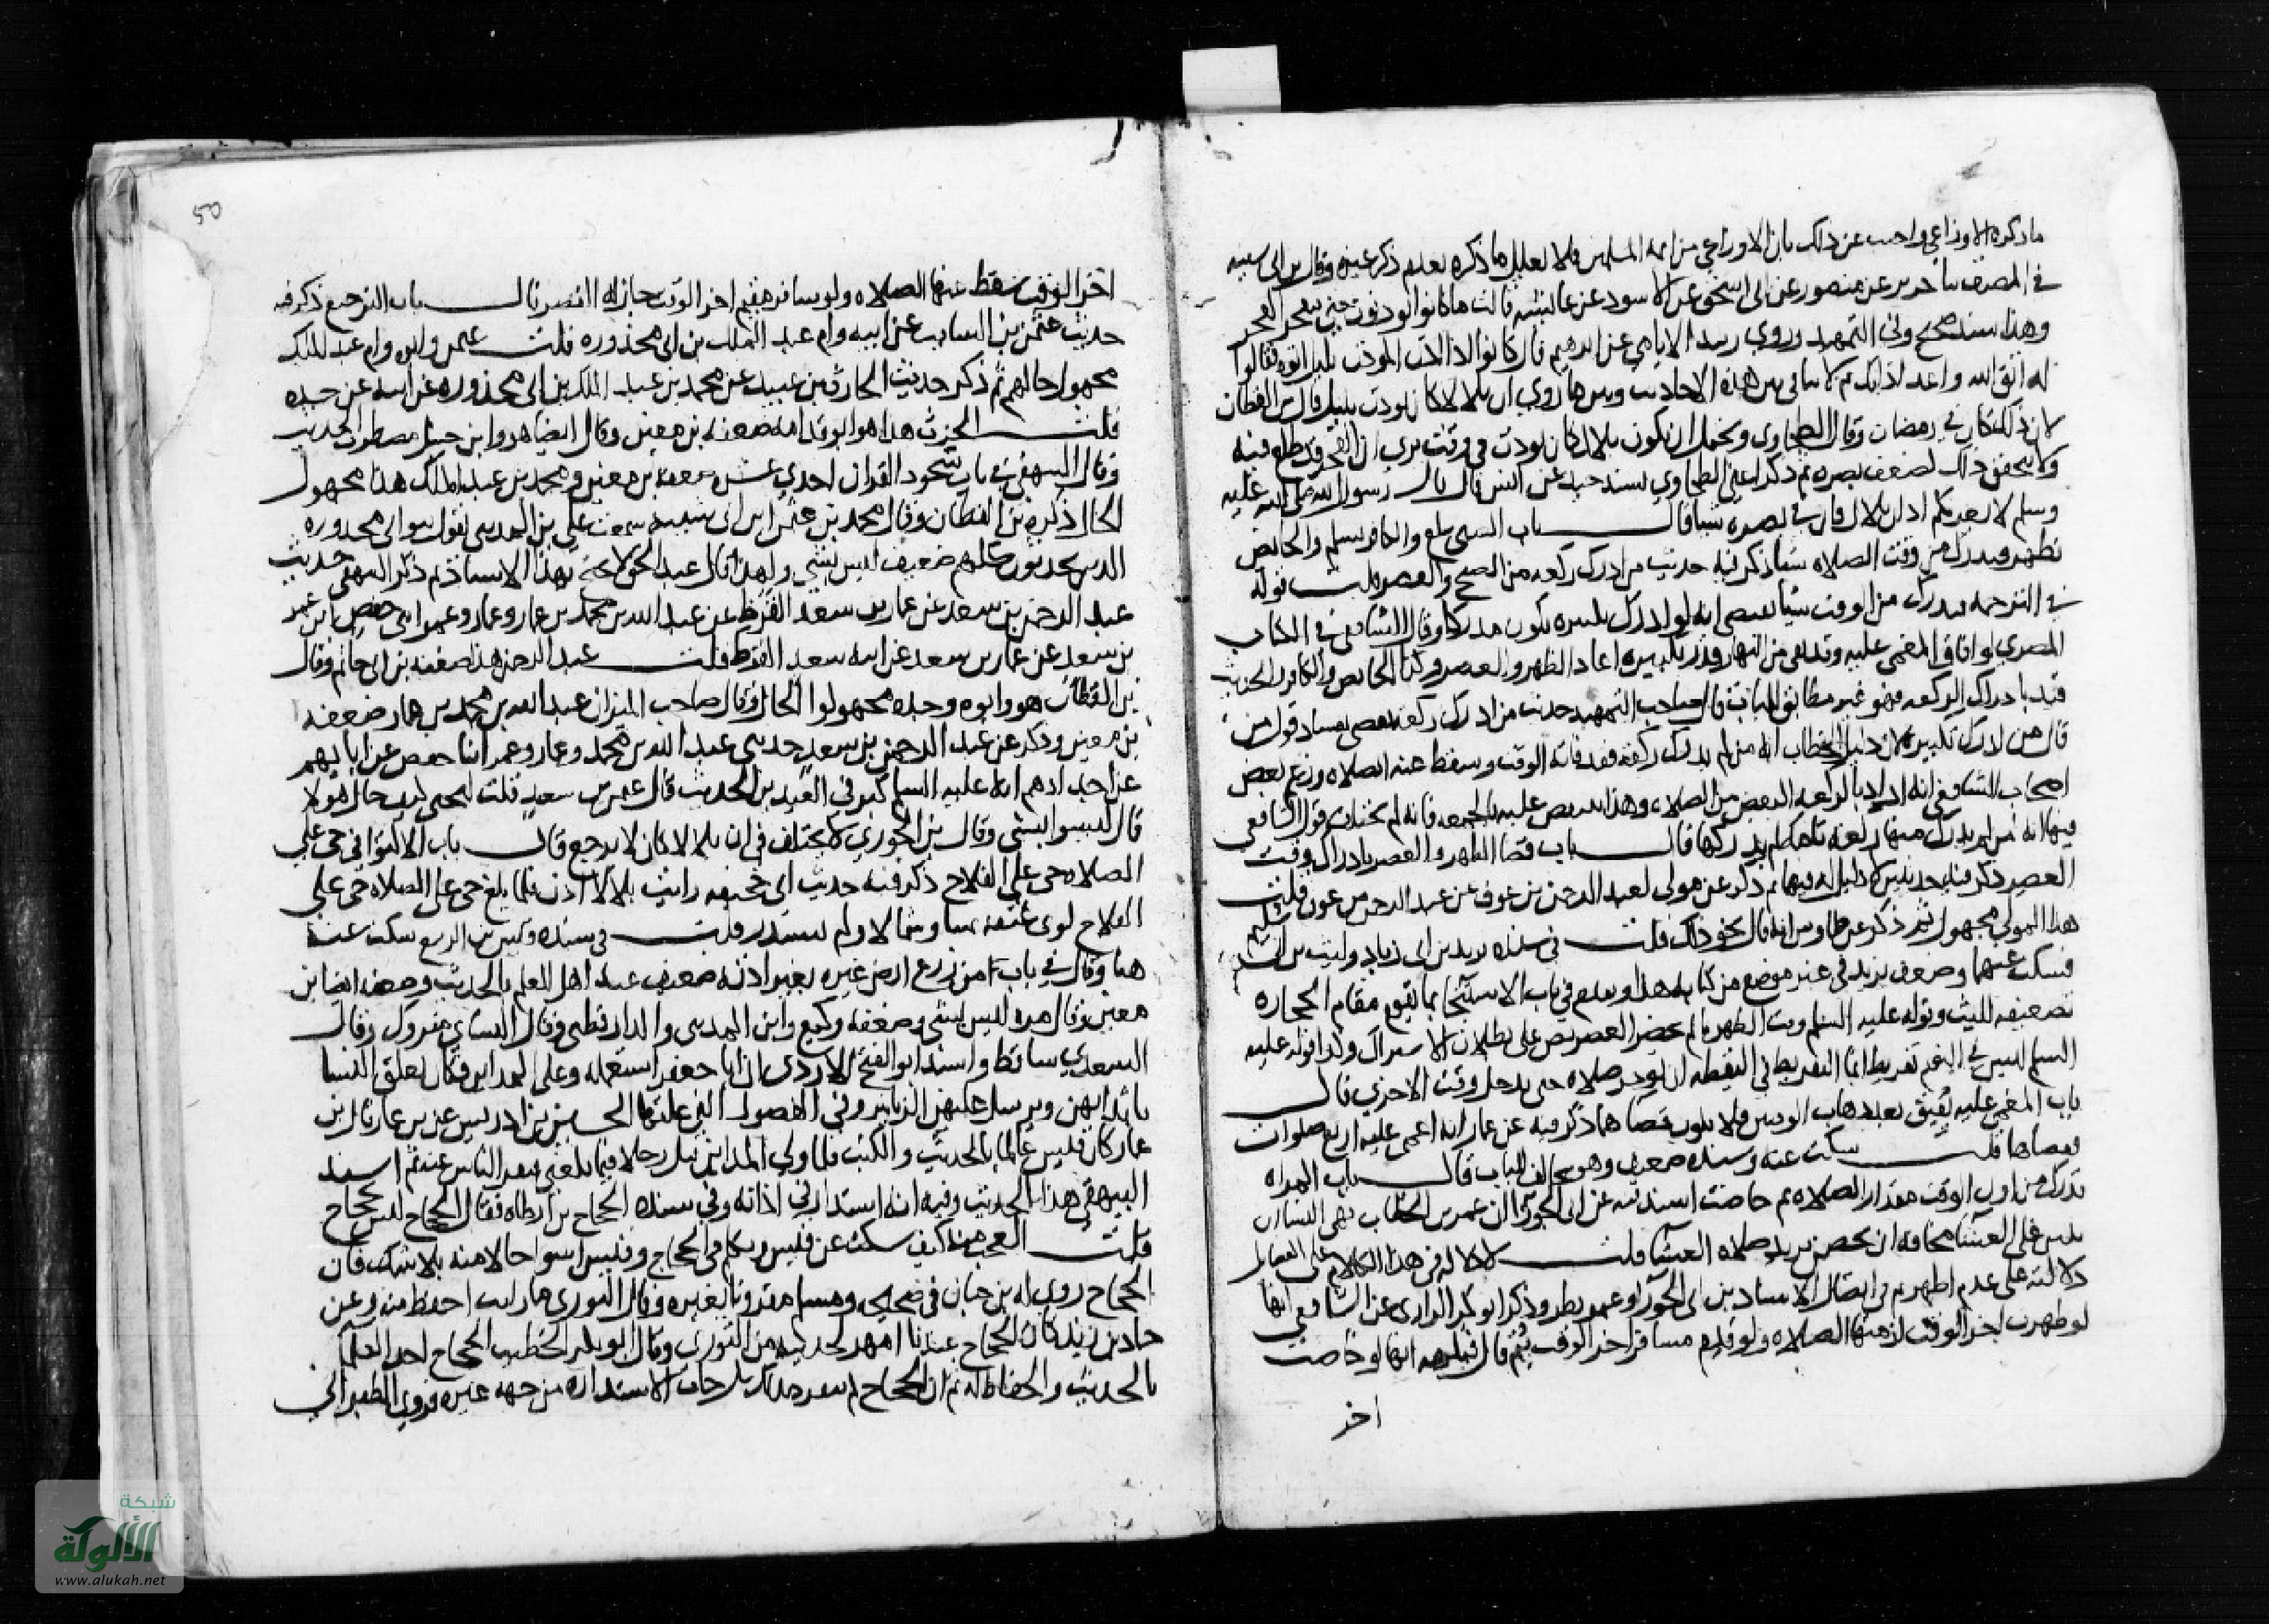 ما ذكره الاوزاعي واجيب عن ذلك بان الاوزاعي من ائمة المسلمين فلا يعلل ما ذكره بعدم ذكر غيره وقال بن ابي شيبه
في المصنف ثنا جرير عن منصور عن ابي اسحق عن الاسود عن عائشه قالت ما كانوا يوذنون حتى ينفجر الفجر
وهذا سند صحيح وفي التمهيد وروى زبيد الايامي عن ابرهيم قال كانوا اذا اذن الموذن بليل اتوه فقالوا
له اتق الله واعد اذانك ثم لا تنافي بين هذه الاحاديث وبين ما روي ان بلالا كان يوذن بليل قال بن القطان
لان ذلك كان في رمضان وقال الطحاوي ويحتمل ان يكون بلال كان يوذن في وقت يرى ان الفجر قد طلع فيه
ولا يتحقق ذلك لضعف بصره ثم ذكر اعني الطحاوي بسند جيد عن انس قال قال رسول الله صلى الله عليه
وسلم لا يغرنكم اذان بلال فان في بصره شيا قال باب الصبي يبلغ والكافر يسلم والحائض
تطهر فيدرك من وقت الصلاه شيا ذكر فيه حديث من ادرك ركعه من الصبح والعصر قلت قوله
في الترجمه فيدرك من الوقت شيا يقتضي انه لو ادرك تكبيره يكون مدركا وقال الشافعي في الكتاب
المصري لو افاق المغمى عليه وقد بقي من النهار قدر تكبيره اعاد الظهر والعصر وكذا الحائض والكافر والحديث
قيد بادراك الركعه فهو غير مطابق للباب قال صاحب التمهيد حديث من ادرك ركعه يقتضي فساد قول من
قال من ادرك تكبيره لان دليل الخطاب انه من لم يدرك ركعه فقد فاته الوقت وسقط عنه الصلاه وزعم بعض
اصحاب الشافعي انه اراد بالركعه البعض من الصلاه وهذا ينتقض عليه بالجمعه فانه لم يختلف قول الشافعي
فيها انه من لم يدرك منها ركعه تامه لم يدركها قال باب قضا الظهر والعصر بادراك وقت
العصر ذكر فيه حديثين لا دليل له فيهما ثم ذكر عن مولى لعبد الرحمن بن عوف عن عبد الرحمن بن عوف قلت
هذا المولى مجهول ثم ذكر عن طاوس انه قال نحو ذلك قلت في سنده يزيد بن ابي زياد وليث بن ابي سليم
فسكت عنهما وضعف يزيد في غير موضع من كتابه هذا وتقدم في باب الاستنجا بما يقوم مقام الحجاره
تضعيفه لليث وقوله عليه السلم وقت الظهر ما لم يحضر العصر نص على بطلان الاشتراك وكذا قوله عليه
السلم ليس في النوم تفريط انما التفريط في اليقظه ان يوخر صلاه حتى يدخل وقت الاخرى قال
باب المغمى عليه يفيق بعد ذهاب الوقتين فلا يكون عليه قضاهما ذكر فيه عن عمار انه اغمي عليه اربع صلوات
فقضاها قلت سكت عنه وسنده ضعيف وهو مخالف للباب قال باب المراه
تدرك من اول الوقت مقدار الصلاه ثم حاضت اسند فيه عن ابي الجوزا ان عمر بن الخطاب نهى النسا ان
ينمن عن العشا مخافه ان يحضن يريد صلاه العشا قلت لا دلاله في هذا الكلام على القضا بل
دلالته على عدم اظهر ثم في اتصال الاسناد بين ابي الجوزا وعمر نظر وذكر ابو بكر الرازي عن الشافعي انها
لو طهرت اخر الوقت لزمتها الصلاه ولو قدم مسافر اخر الوقت يتم قال فيلزمه انها لو حاضت
اخر
50
اخر الوقت تسقط عنها الصلاه ولو سافر مقيم اخر الوقت جاز له القصر قال باب الترجيع ذكر فيه
حديث عثمن بن السايب عن ابيه وام عبد الملك بن ابي محذوره قلت عثمن وابوه وام عبد الملك
مجهول حالهم ثم ذكر حديث الحارث بن عبيد عن محمد بن عبد الملك بن ابي محذوره عن ابيه عن جده
قلت الحرث هذا هو ابو قدامه ضعفه بن معين وقال ايضا هو وابن حنبل مضطرب الحديث
وقال البيهقي في باب سجود القران احدى عشره ضعفه بن معين ومحمد بن عبد الملك هذا مجهول
الحال ذكره بن القطان وقال محمد بن عثمن ابن ابي شيبه سمعت علي بن المديني يقول بنو ابي محذوره
الذين يحدثون كلهم ضعيف ليس بشي ولهذا قال عبد الحق لا يحتج بهذا الاسناد ثم ذكر البيهقي حديث
عبد الرحمن بن سعد بن عمار بن سعد القرظ عن عبد الله بن محمد بن عمار وعمار وعمر ابني حفص بن عمر
بن سعد عن عمار بن سعد عن ابيه سعد القرظ قلت عبد الرحمن هذا ضعفه بن ابي حاتم وقال
بن القطان هو وابوه وجده مجهولوا الحال وقال صاحب الميزان عبد الله بن محمد بن عمار ضعفه
بن معين وذكر عن عبد الرحمن بن سعد حدثني عبد الله بن محمد وعمار وعمر ابنا حفص عن ابايهم
عن اجدادهم انه عليه السلم كبر في العيدين الحديث قال عثمن بن سعيد قلت ليحيى كيف حال هولا
قال ليسوا بشي وقال بن الجوزي لا يختلف في ان بلالا كان لا يرجع قال باب الالتوا في حي على
الصلاه حي على الفلاح ذكر فيه حديث ابي جحيفه رايت بلالا اذن فلما بلغ حي على الصلاه حي على
الفلاح لوى عنقه يمينا وشمالا ولم يستدر قلت في سنده قيس بن الربيع سكت عنه
هنا وقال في باب من زرع ارض غيره بغير اذنه ضعيف عند اهل العلم بالحديث وضعفه ايضا بن
معين وقال مره ليس بشي وضعفه وكيع وابن المديني والدارقطني وقال النسائي متروك وقال
السعدي ساقط واسند ابو الفتح الازدي ان ابا جعفر استعمله على المداين فكان يعلق النسا
بثديهن ويرسل عليهن الزنابير وفي الفصول التي علقها الحسين بن ادريس عن بن عمار قال بن
عمار كان قيس عالما بالحديث والكتب فلما ولي المداين قتل رجلا فيما بلغني فنفر الناس عنه ثم اسند
البيهقي هذا الحديث وفيه انه استدار في اذانه وفي سنده الحجاج بن ارطاه فقال الحجاج ليس بحجه
قلت العجب منه كيف سكت عن قيس وتكلم في الحجاج وقيس اسوا حالا منه بلا شك فان
الحجاج روى له بن حبان في صحيحه ومسلم مقرونا بغيره وقال الثوري ما رايت احفظ منه وعن
حماد بن زيد كان الحجاج عندنا امهر لحديثه من الثوري وقال ابو بكر الخطيب الحجاج احد العلما
بالحديث والحفاظ له ثم ان الحجاج لم ينفرد بذلك بل جات الاستداره من جهه غيره فروى الطبراني
شبكة
الألوكة
www.alukah.net